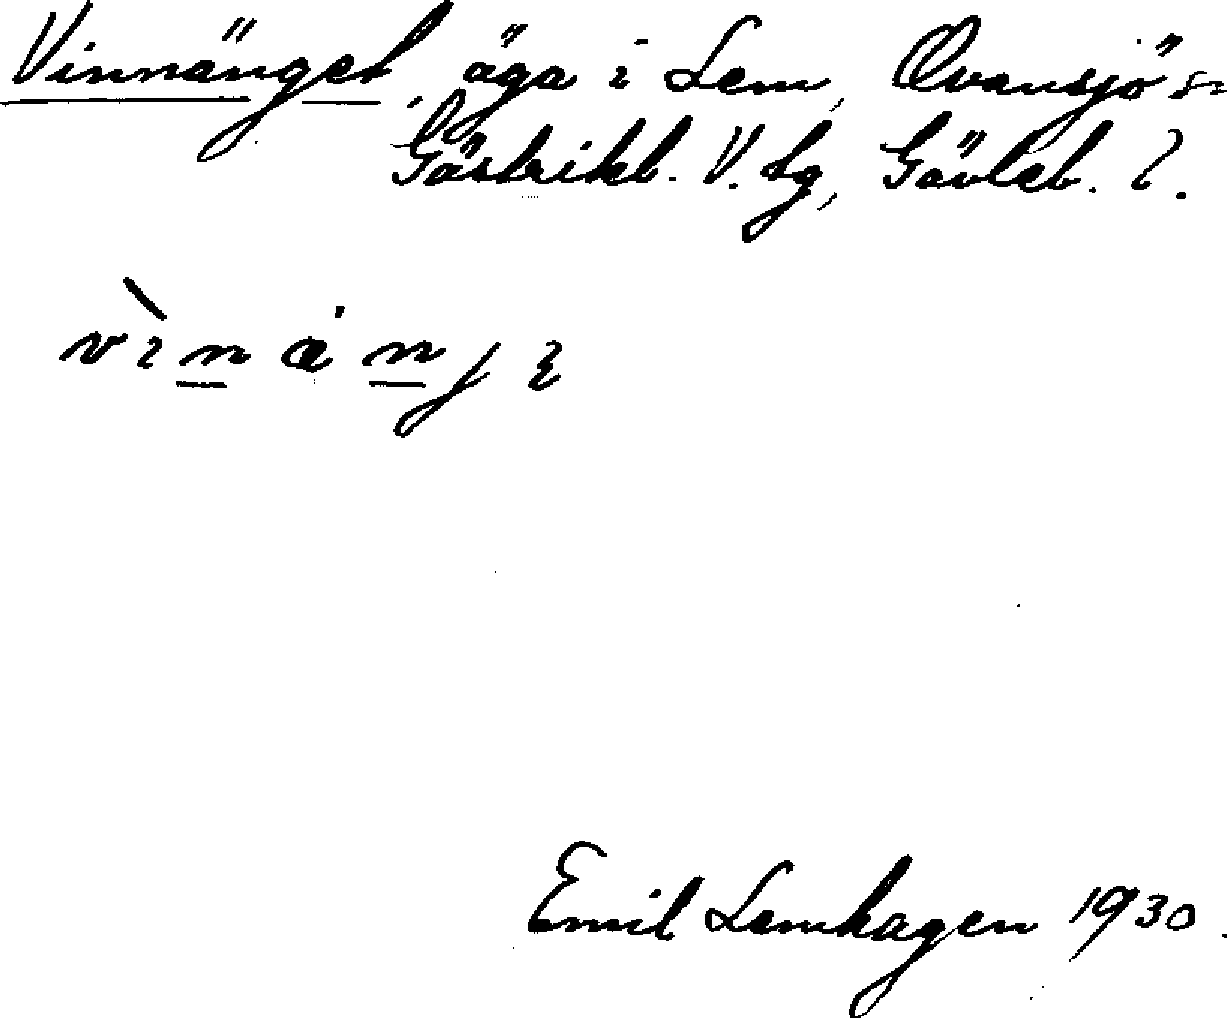 Vinnänget äga i Lem, Ovansjö sn
Gästrikl. V. tg, Gävleb. l.
vinänjε
Emil Lemhagen 1930.